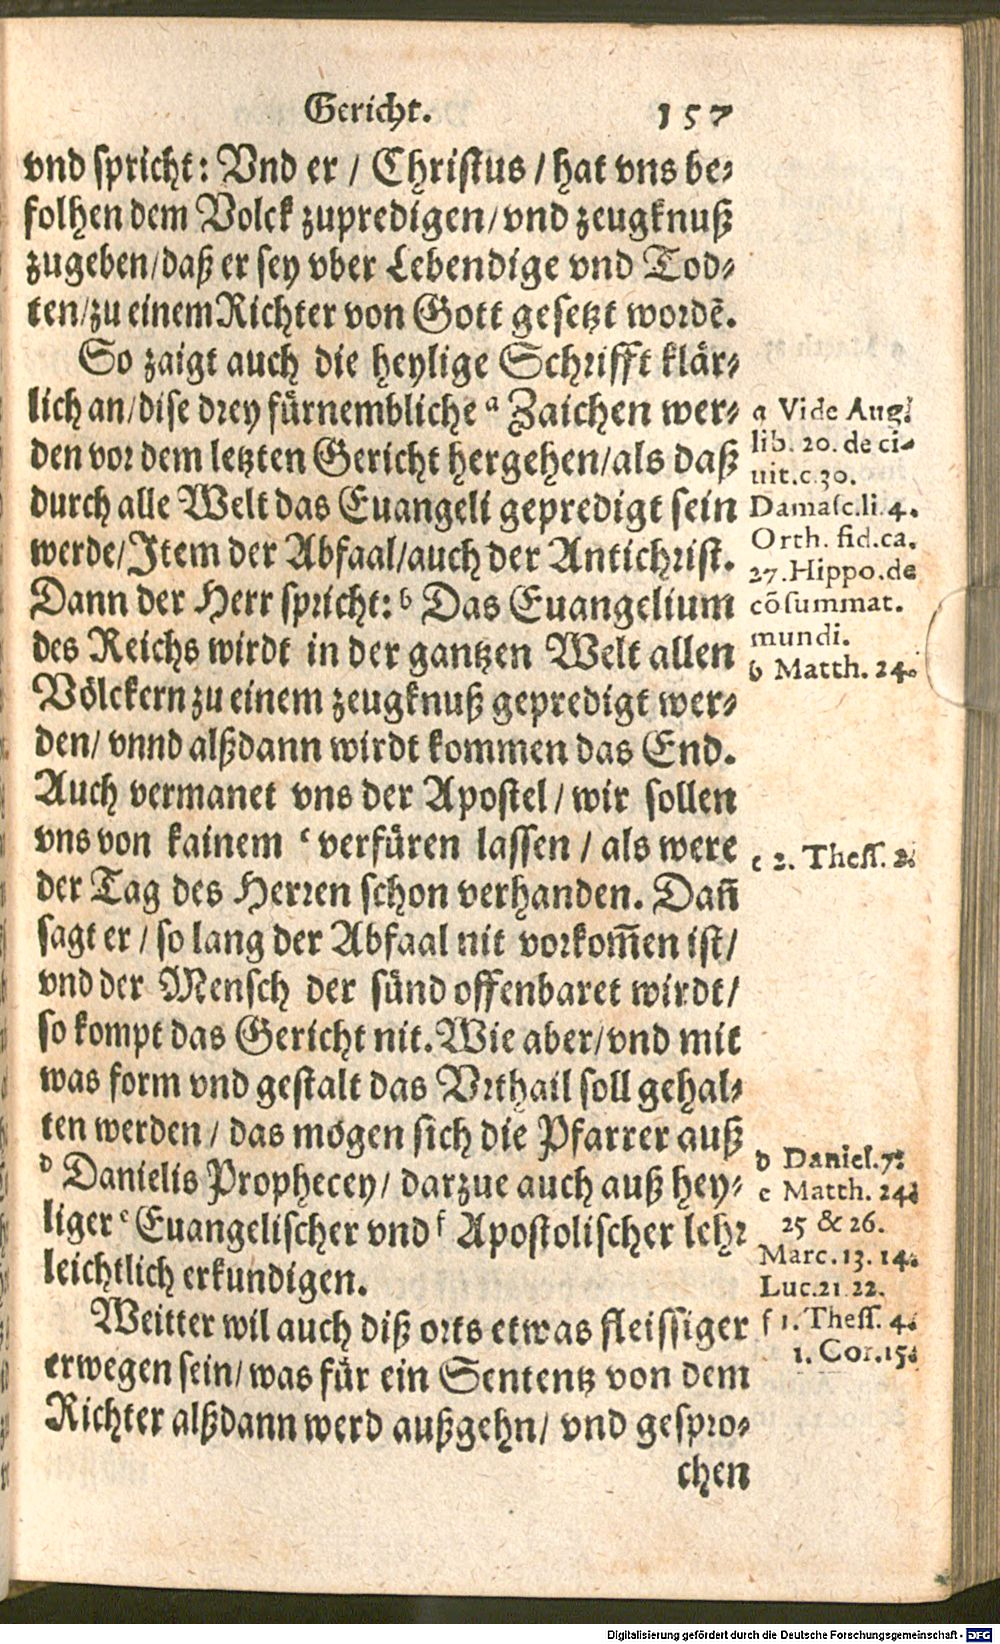 Gericht. 157
vnd spricht: Vnd er / Christus / hat vns be-
folhen dem Volck zupredigen/ vnd zeugknuß
zugeben/ daß er sey vber Lebendige vnd Tod-
ten/ zu einem Richter von Gott gesetzt wordē.
So zaigt auch die heylige Schrifft klär-
lich an/ dise drey fürnembliche a Zaichen wer-
den vor dem letzten Gericht hergehen/ als daß
durch alle Welt das Euangeli gepredigt sein
werde/ Item der Abfaal/ auch der Antichrist.
Dann der Herr spricht: b Das Euangelium
des Reichs wirdt in der gantzen Welt allen
Völckern zu einem zeugknuß gepredigt wer-
den/ vnnd alßdann wirdt kommen das End.
Auch vermanet vns der Apostel / wir sollen
vns von kainem c verfüren lassen / als were
der Tag des Herren schon verhanden. Dañ
sagt er / so lang der Abfaal nit vorkom̃en ist/
vnd der Mensch der sünd offenbaret wirdt/
so kompt das Gericht nit. Wie aber/ vnd mit
was form vnd gestalt das Vrthail soll gehal-
ten werden / das mögen sich die Pfarrer auß
d Danielis Prophecey/ darzue auch auß hey-
liger e Euangelischer vnd f Apostolischer lehr
leichtlich erkundigen.
Weitter wil auch diß orts etwas fleissiger
erwegen sein/ was für ein Sententz von dem
Richter alßdann werd außgehn/ vnd gespro-
chen
a Vide Aug.
lib. 20. de ci-
uit. c. 30.
Damasc. li. 4.
Orth. fid. ca.
27. Hippo. de
cõsummat.
mundi.
b Matth. 24.
c 2. Thess. 2.
d Daniel. 7.
e Matth. 24.
25 & 26.
Marc. 13. 14.
Luc. 21 22.
f 1. Thess. 4.
1. Cor. 15.
Digitalisierung gefördert durch die Deutsche Forschungsgemeinschaft - DFG